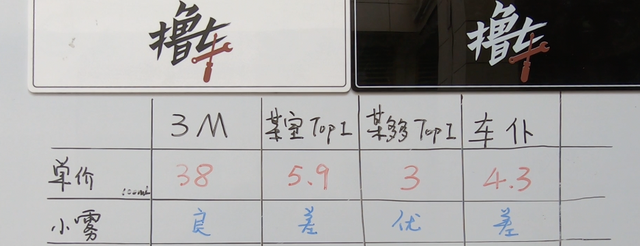 撸车 撸车
3M 某宝Top1 某多Top1 车仆
单价 100ml 38 5.9 3 4.3
小雾 良 差 优 差